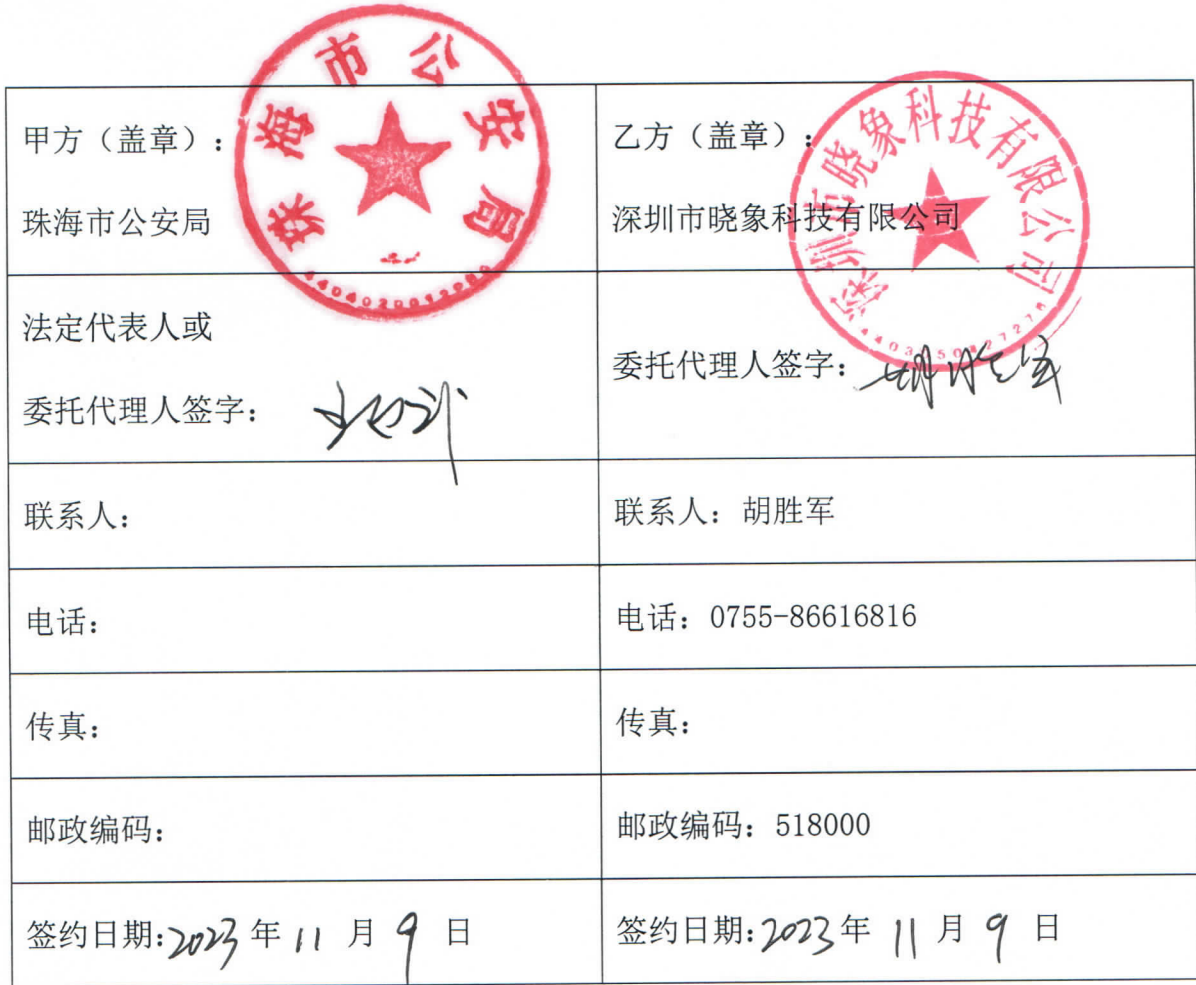 珠海市公安局
深圳市晓象科技有限公司
甲方（盖章）：
珠海市公安局
乙方（盖章）：
深圳市晓象科技有限公司
法定代表人或
委托代理人签字：
委托代理人签字：胡胜军
联系人：
联系人：胡胜军
电话：
电话：0755-86616816
传真：
传真：
邮政编码：
邮政编码：518000
签约日期:2023年 11 月 9 日
签约日期:2023年 11 月 9 日